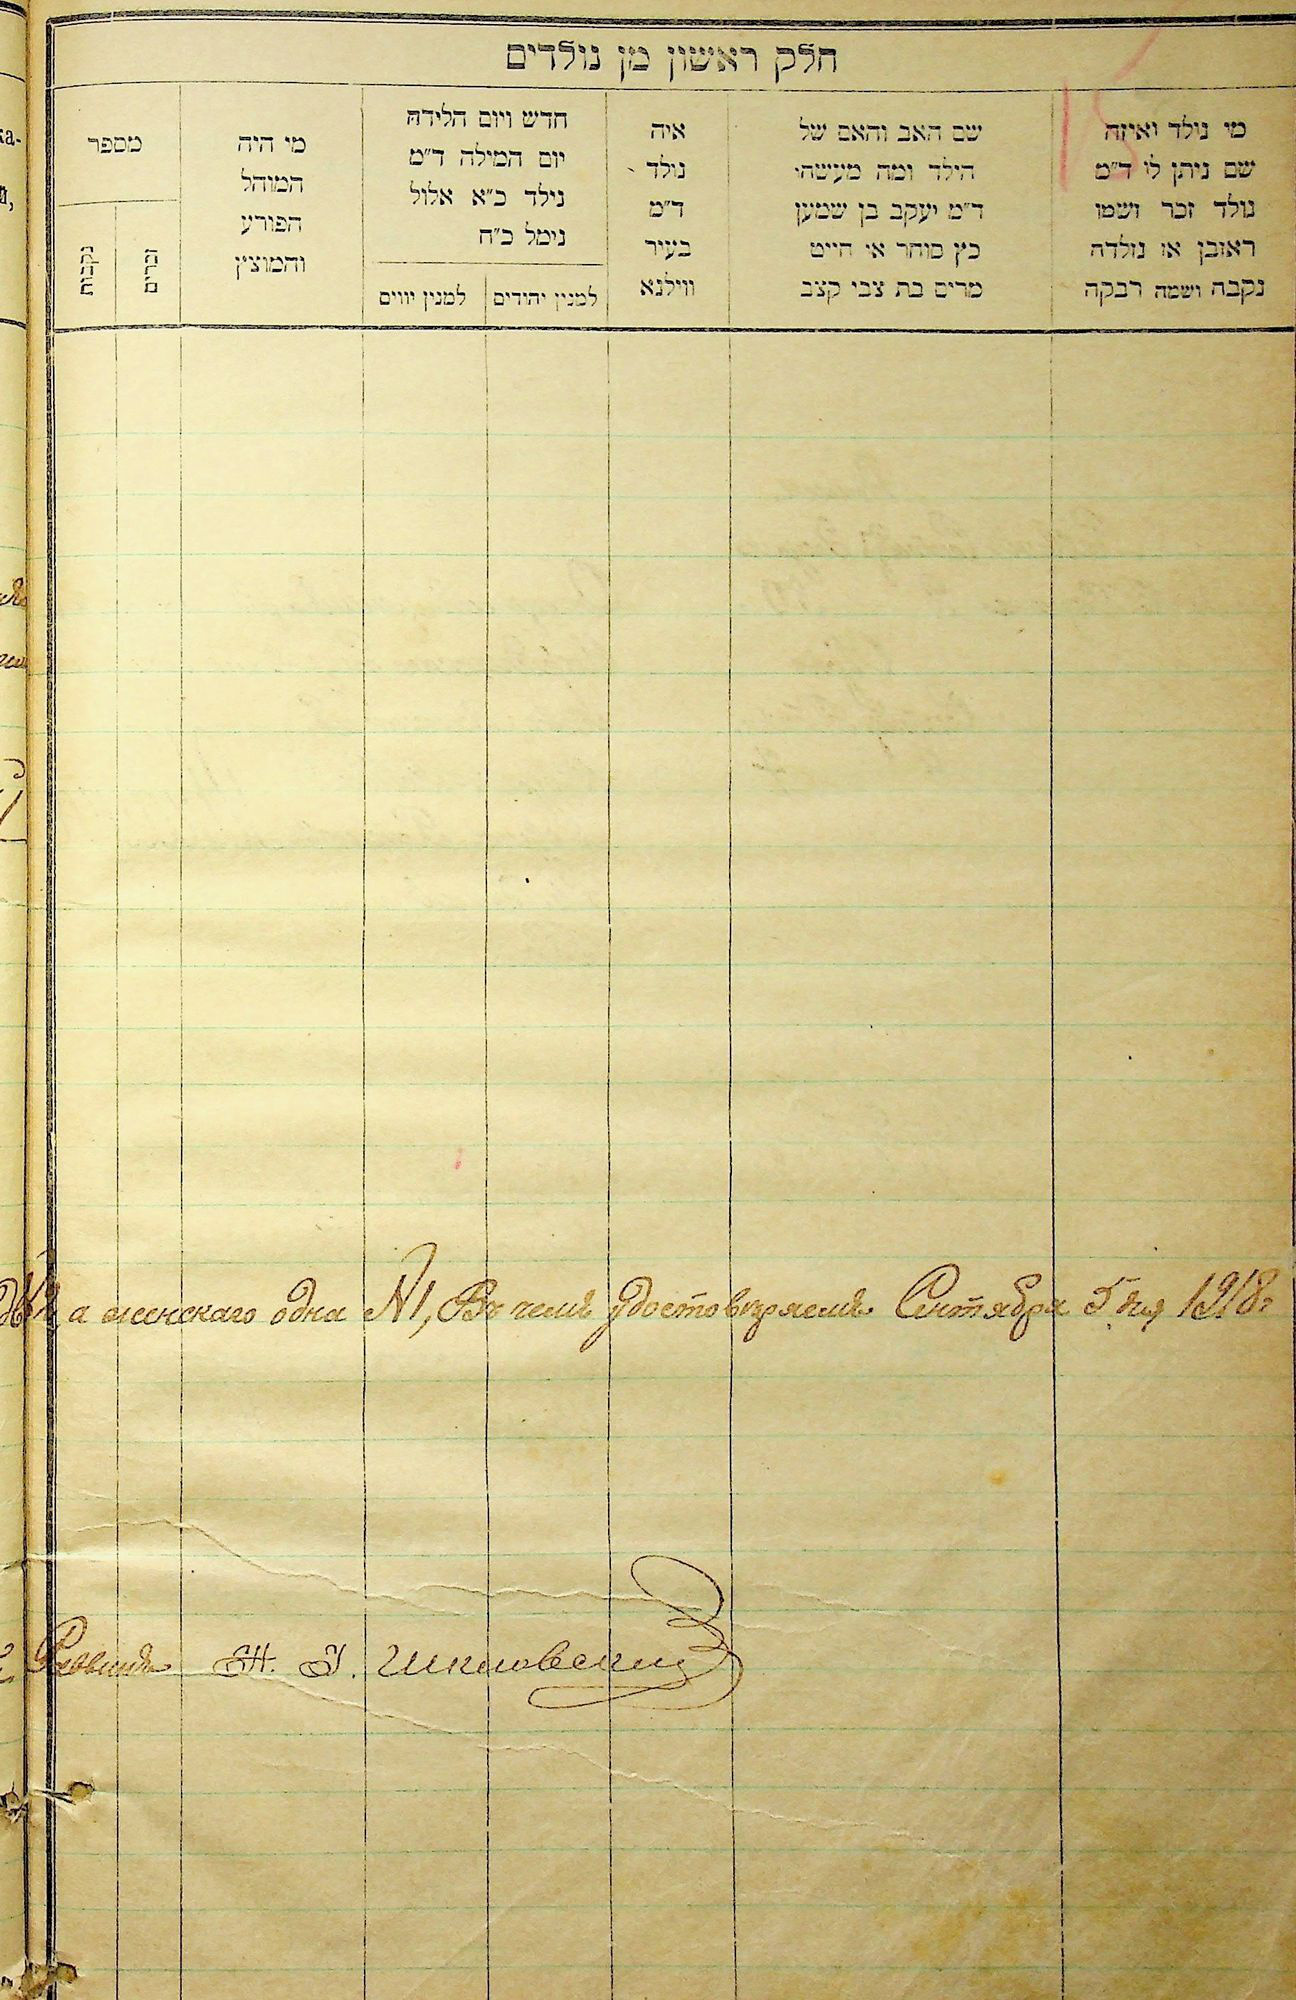 חלק ראשון מן נולדים
מי נולד ואיזה
שם ניתן לו ד״מ
נולד זכר ושמו
ראובן או נולדה
נקבה ושמה רבקה
שם האב והאם של
הילד ומה מעשהו
ד״מ יעקב בן שמען
כץ סוחר או חייט
מרים בת צבי קצב
איה
נולד
ד״מ
בעיר
ווילנא
חדש ויום הלידה
יום המילה ד״מ
נילד כ״א אלול
נימל כ״ח
למנין יהודים
למנין יווים
מי היה
המוהל
הפורע
והמוצץ
מספר
זכרים
נקבות
а женскаго одна №1, Въ чемъ удостовѣряемъ Сентября 5 дня 1918г
Раввинъ Шкловскій